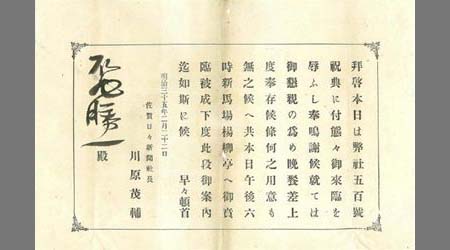 拜啓本日は弊社五百號
祝典に付態々御來臨を
辱ふし奉鳴謝候就ては
御懇親の爲め晩餐差上
度奉存候條何之用意も
無之候へ共本日午後六
時新馬場楊柳亭へ御賁
臨被成下度此段御案內
迄如斯に候 早々頓首
明治三十五年二月二十二日
佐賀日々新聞社長
川原茂輔
殿